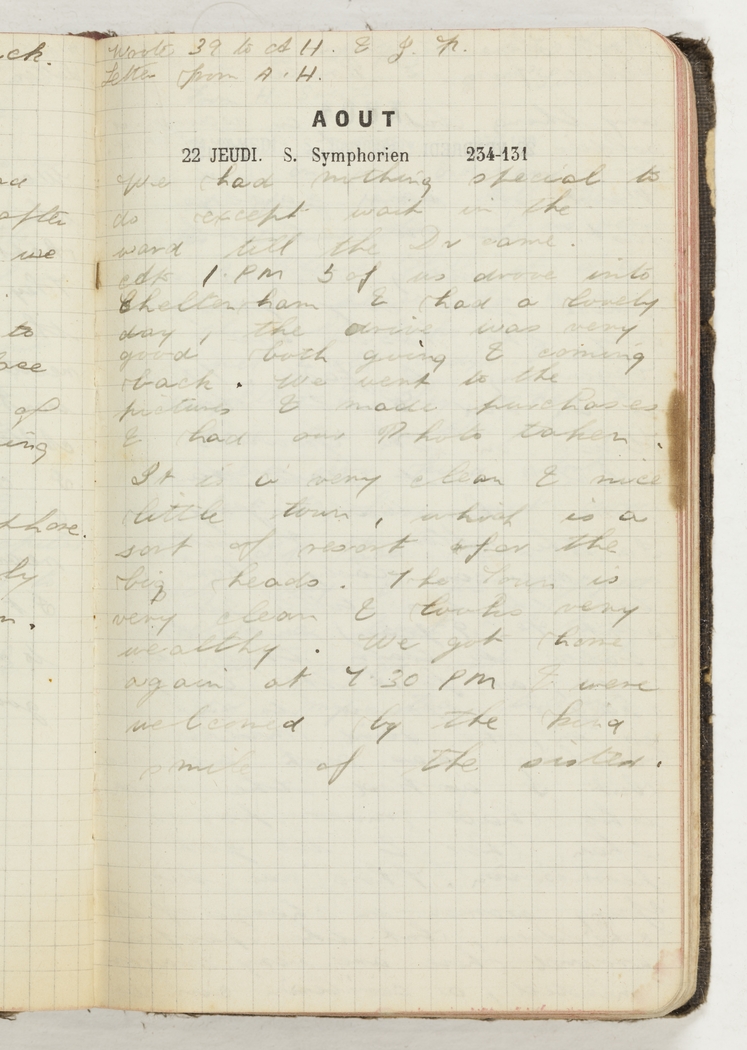 ck.
Wrote 39 to A H. & J. R.
Letter from A. H.
AOUT
22 JEUDI. S. Symphorien 234-131
We had nothing special to
do except wait in the
after
ward till the Dr came.
we
at 1 PM 5 of us drove into
Cheltenham & had a lovely
to
day, the drive was very
good both going & coming
back. We went to the
of
pictures & made purchases
ing
& had our Photo taken.
It is a very clean & nice
little town, which is a
sort of resort for the
big heads. The Town is
ly
very clean & looks very
n.
wealthy. We got home
again at 7 30 PM & were
welcomed by the kind
smile of the sister.